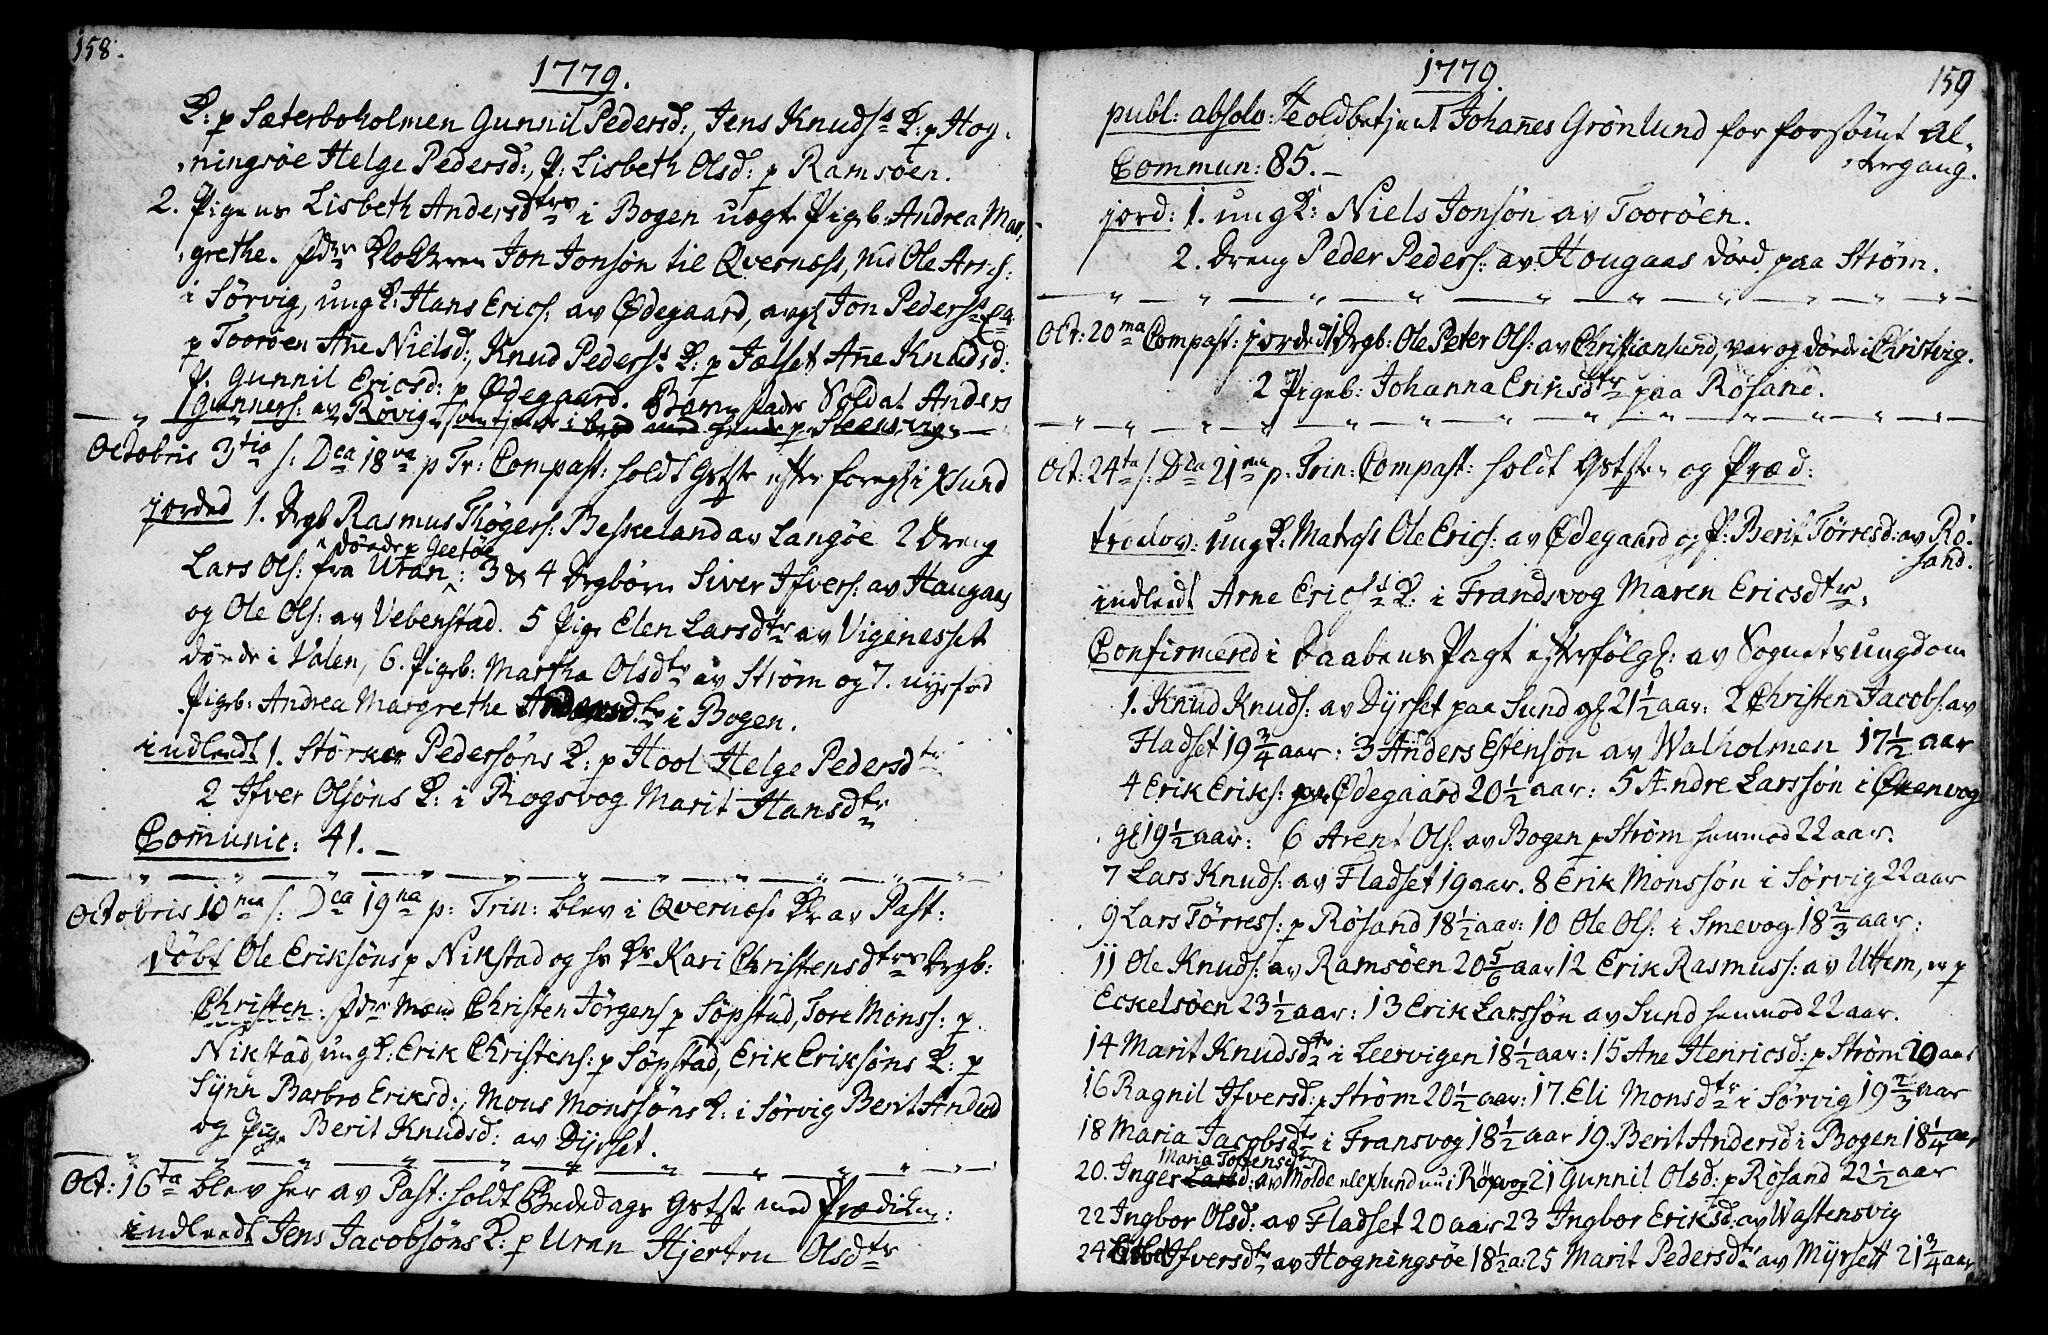 158.
1779.
K: p Sæterboholmen Gunnil Pedersd:, Jens Knuds K: p Hog,
ningsøe Helge Pedersd:, P: Lisbeth Olsd: p Ramsøen.
2. Pigens Lisbeth Andersdtrs i Bogen uegte Pigeb: Andrea Mar,
grethe. Fdre Klokkeren Jon Jonsøn til Qvernæss,
i Sørvig, ung K: Hans Erics: av Ødegaard, Jon Peders
p Toorøen Ane Nielsd:, Knud Peders K: p Jælset Ane Knudsd:
P. Gunnil Ericsd: p Ødegaard. Barnefader Soldat Anders
Gunners: av Røvig, som
Octobris 3tia s: Dca 18va p Tr: Compast: holdt Gstste efter foreg: i Xsund
jorded 1. Drgb Rasmus Thøgers: Beskeland av Langøe 2 Dreng
døde p Jeetøe
Lars Ols: fra Uran: 3 & 4 Drgbørn Siver Ifvers: av Haugaas
og Ole Ols: av Vebenstad. 5 Pige Elen Larsdtr av Vigenesset
døde i Valen, 6. Pigeb: Martha Olsdtr av Strøm og 7. nyefød
Pigeb: Andrea Margrethe Andersdtr i Bogen.
indledt 1. Størker Pedersøns K: p Hool Helge Pedersdtr
2 Ifver Olsøns K: i Rogsvog Marit Hansdtr
Comunic: 41.
Octobris 10ma s: Dca 19na p: Trin: blev i Qvernæs K av Past:
døbt Ole Eriksøns p Nikstad og hs Kr Kari Christensdtrs Drgb:
Christen. Fdre Mænd Christen Jørgens p Søpstad, Tore Monss: p
Nikstad, ung K: Erik Christens: p Søpstad, Erik Eriksøns K: p
Synn Barbro Eriksd:, Mons Monssøns K: i Sørvig Berit Andersd
og Pige Berit Knudsd: av Dyrset.
Oct: 16ta blev her av Past: holdt Bededags Gstste med Prædiken:
indledt Jens Jacobsøns K: p Uran Hjertru Olsdtr
1779
159
publ: absolv: Toldbetjent Johanes Grønlund for forsømt Al,
tergang.
Commun: 85.
jord: 1. ung K: Niels Jonsøn av Toorøen.
2. Dreng Peder Peders: av Hougaas død paa Strøm.
Oct: 20ma Compast: jorded 1 Drgb: Ole Peter Ols: av Christiansund, var og døde i Christvig.
2 Pigeb: Johanna Eriksdtr paa Røsand.
Oct: 24ta s: Dca 21ma p: Trin: Compast: holdt Gstste og Præd:
trolov: ung K: Matros Ole Erics: av Ødegaard og P: Berit Tørresd: av Rø,
sand.
indledt Arne Erics K: i Frandsvog Maren Ericsdtr.
Confirmered i Daabens Pagt efterfølg: av Sognets ungdom
1. Knud Knuds: av Dyrset paa Sund gl 21 1/2 aar: 2 Christen Jacobs: av
Fladset 19 3/4 aar: 3 Anders Estensøn av Walholmen 17 1/2 aar
4 Erik Eriks: paa Ødegaard 20 1/2 aar: 5 Andre Larssøn i Ørenvog
gl 19 1/2 aar: 6 Arent Ols: av Bogen p Strøm henmod 22 aar.
7 Lars Knuds: av Fladset 19 aar. 8 Erik Monssøn i Sørvig 22 aar
9 Lars Tørress: p Røsand 18 1/2 aar: 10 Ole Ols: i Smevog 18 2/3 aar:
11 Ole Knuds: av Ramsøen 20 5/6 aar 12 Erik Rasmuss: av Uttem, er p
Eckelsøen 23 1/2 aar: 13 Erik Larssøn av Sund henmod 22 aar.
14 Marit Knudsdtr i Leervigen 18 1/2 aar: 15 Ane Henricsd: p Strøm 20 aar
16 Ragnil Ifversd: p Strøm 20 1/2 aar: 17. Eli Monsdtr i Sørvig 19 2/3 aar
18 Maria Jacobsdtr i Fransvog 18 1/2 aar 19. Berit Andersd i Bogen 18 1/4 aar
Maria Tostensdtr
20. Inger Larsd: av Molde el. Xsund nu i Røsvog 21 Gunnil Olsd: p Røsand 22 1/2 aar
22 Ingbor Olsd: av Fladset 20 aar 23 Ingbor Eriksd: av Wastensvig
24 Ifversdtr av Hogningsøe 18 1/2 a: 25 Marit Pedersdtr av Myrsett 21 3/4 aar